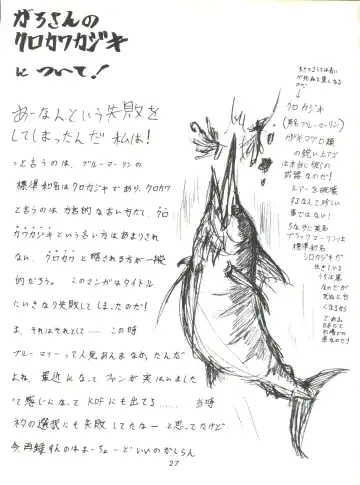 がろさんの
クロカワカジキ
について!
あーなんという失敗を
してしまったんだ 私は!
っと言うのは、ブルーマーリンの
標準和名はクロカジキであり、クロカワ
と言うのは方言的な古い方だし、クロ
カワカジキという言い方はあまりされ
ない、クロカワと略される方が一般
的だろう。このマンガはタイトル
にいきなり失敗してしまったのだ!
ま、それはそれとして……この時
ブルーマリーって人気あんまなかったんだ
よね、最近になってファンが実はいました
って感じになってKOFにも出てる……当時
ネタの選択にも失敗してたなーと思ってたけど
今、再録すんのはまーちょーどいいのかしらん
クロカジキ
(英名ブルーマーリン)
カジキマグロ類
の鋭い上アゴ
は本当に彼らの
武器なのだ!
ルアーを破壊
するなんて珍しい
事ではない!
ちなみに英名
ブラックマーリンは
標準和名
シロカジキだ
生きている
うちは黒
なのだが
死ぬと白
くなるから
である。
27